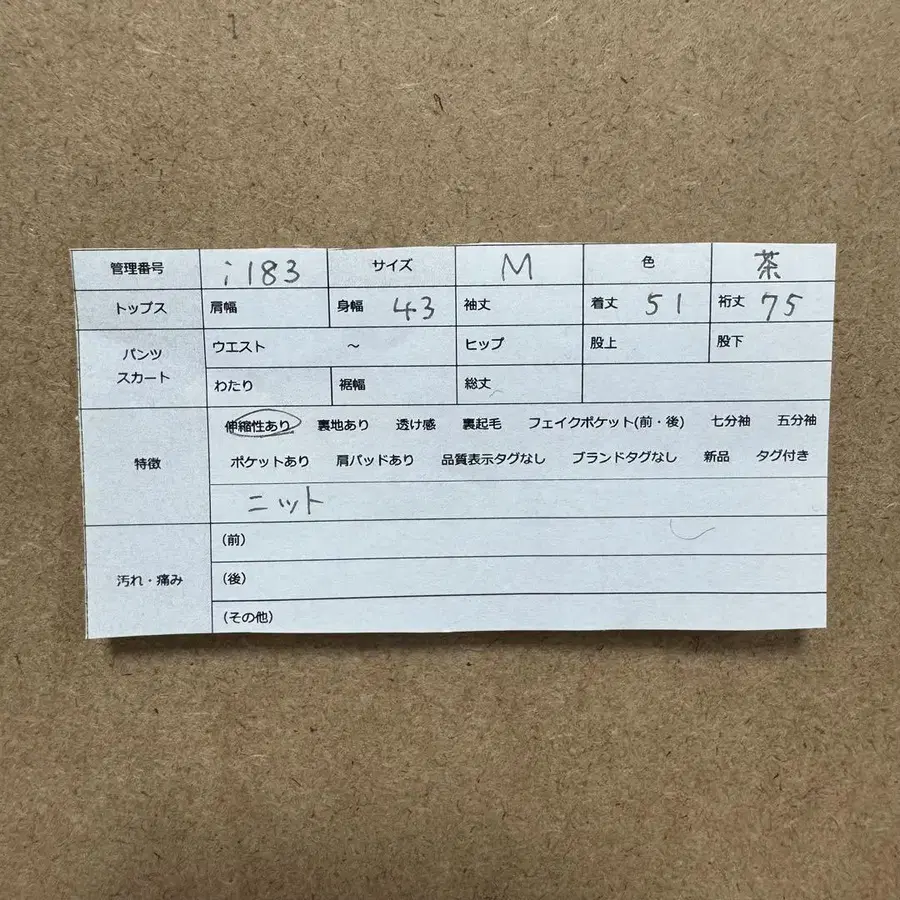 管理番号 i183 サイズ M 色 茶
トップス 肩幅 身幅 43 袖丈 着丈 51 裄丈 75
パンツ スカート
ウエスト ～ ヒップ 股上 股下
わたり 裾幅 総丈
特徴
伸縮性あり 裏地あり 透け感 裏起毛 フェイクポケット(前・後) 七分袖 五分袖
ポケットあり 肩パッドあり 品質表示タグなし ブランドタグなし 新品 タグ付き
ニット
汚れ・痛み
（前）
（後）
（その他）